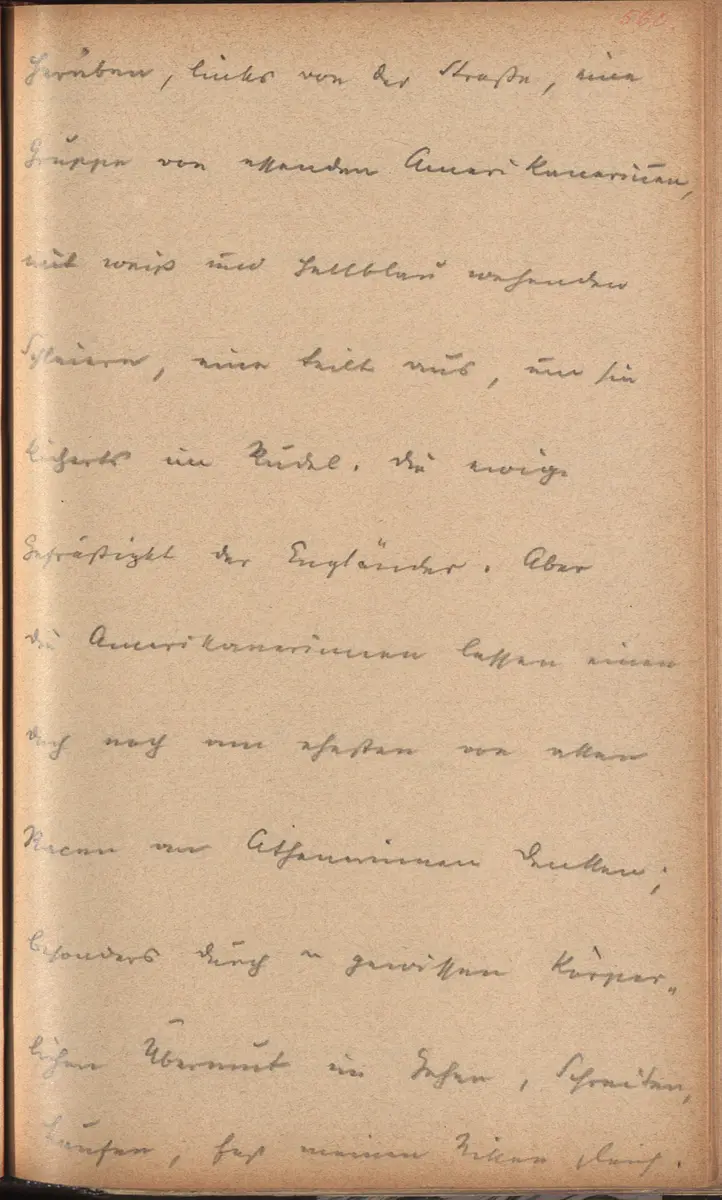 560.
Herüben, links von der Straße, eine
Gruppe von essenden Amerikanerinnen,
mit weiß und hellblau wehenden
Schleiern, eine teilt aus, um sie
kicherts im Rudel. Die ewige
Gefräßigkt der Engländer. Aber
die Amerikanerinnen lassen einen
doch noch am ehesten von allen
Racen an Athenerinnen denken;
besonders durch n gewissen körper„
lichen Übermut im Gehen, Schreiten,
Laufen, fast meinen gleich.